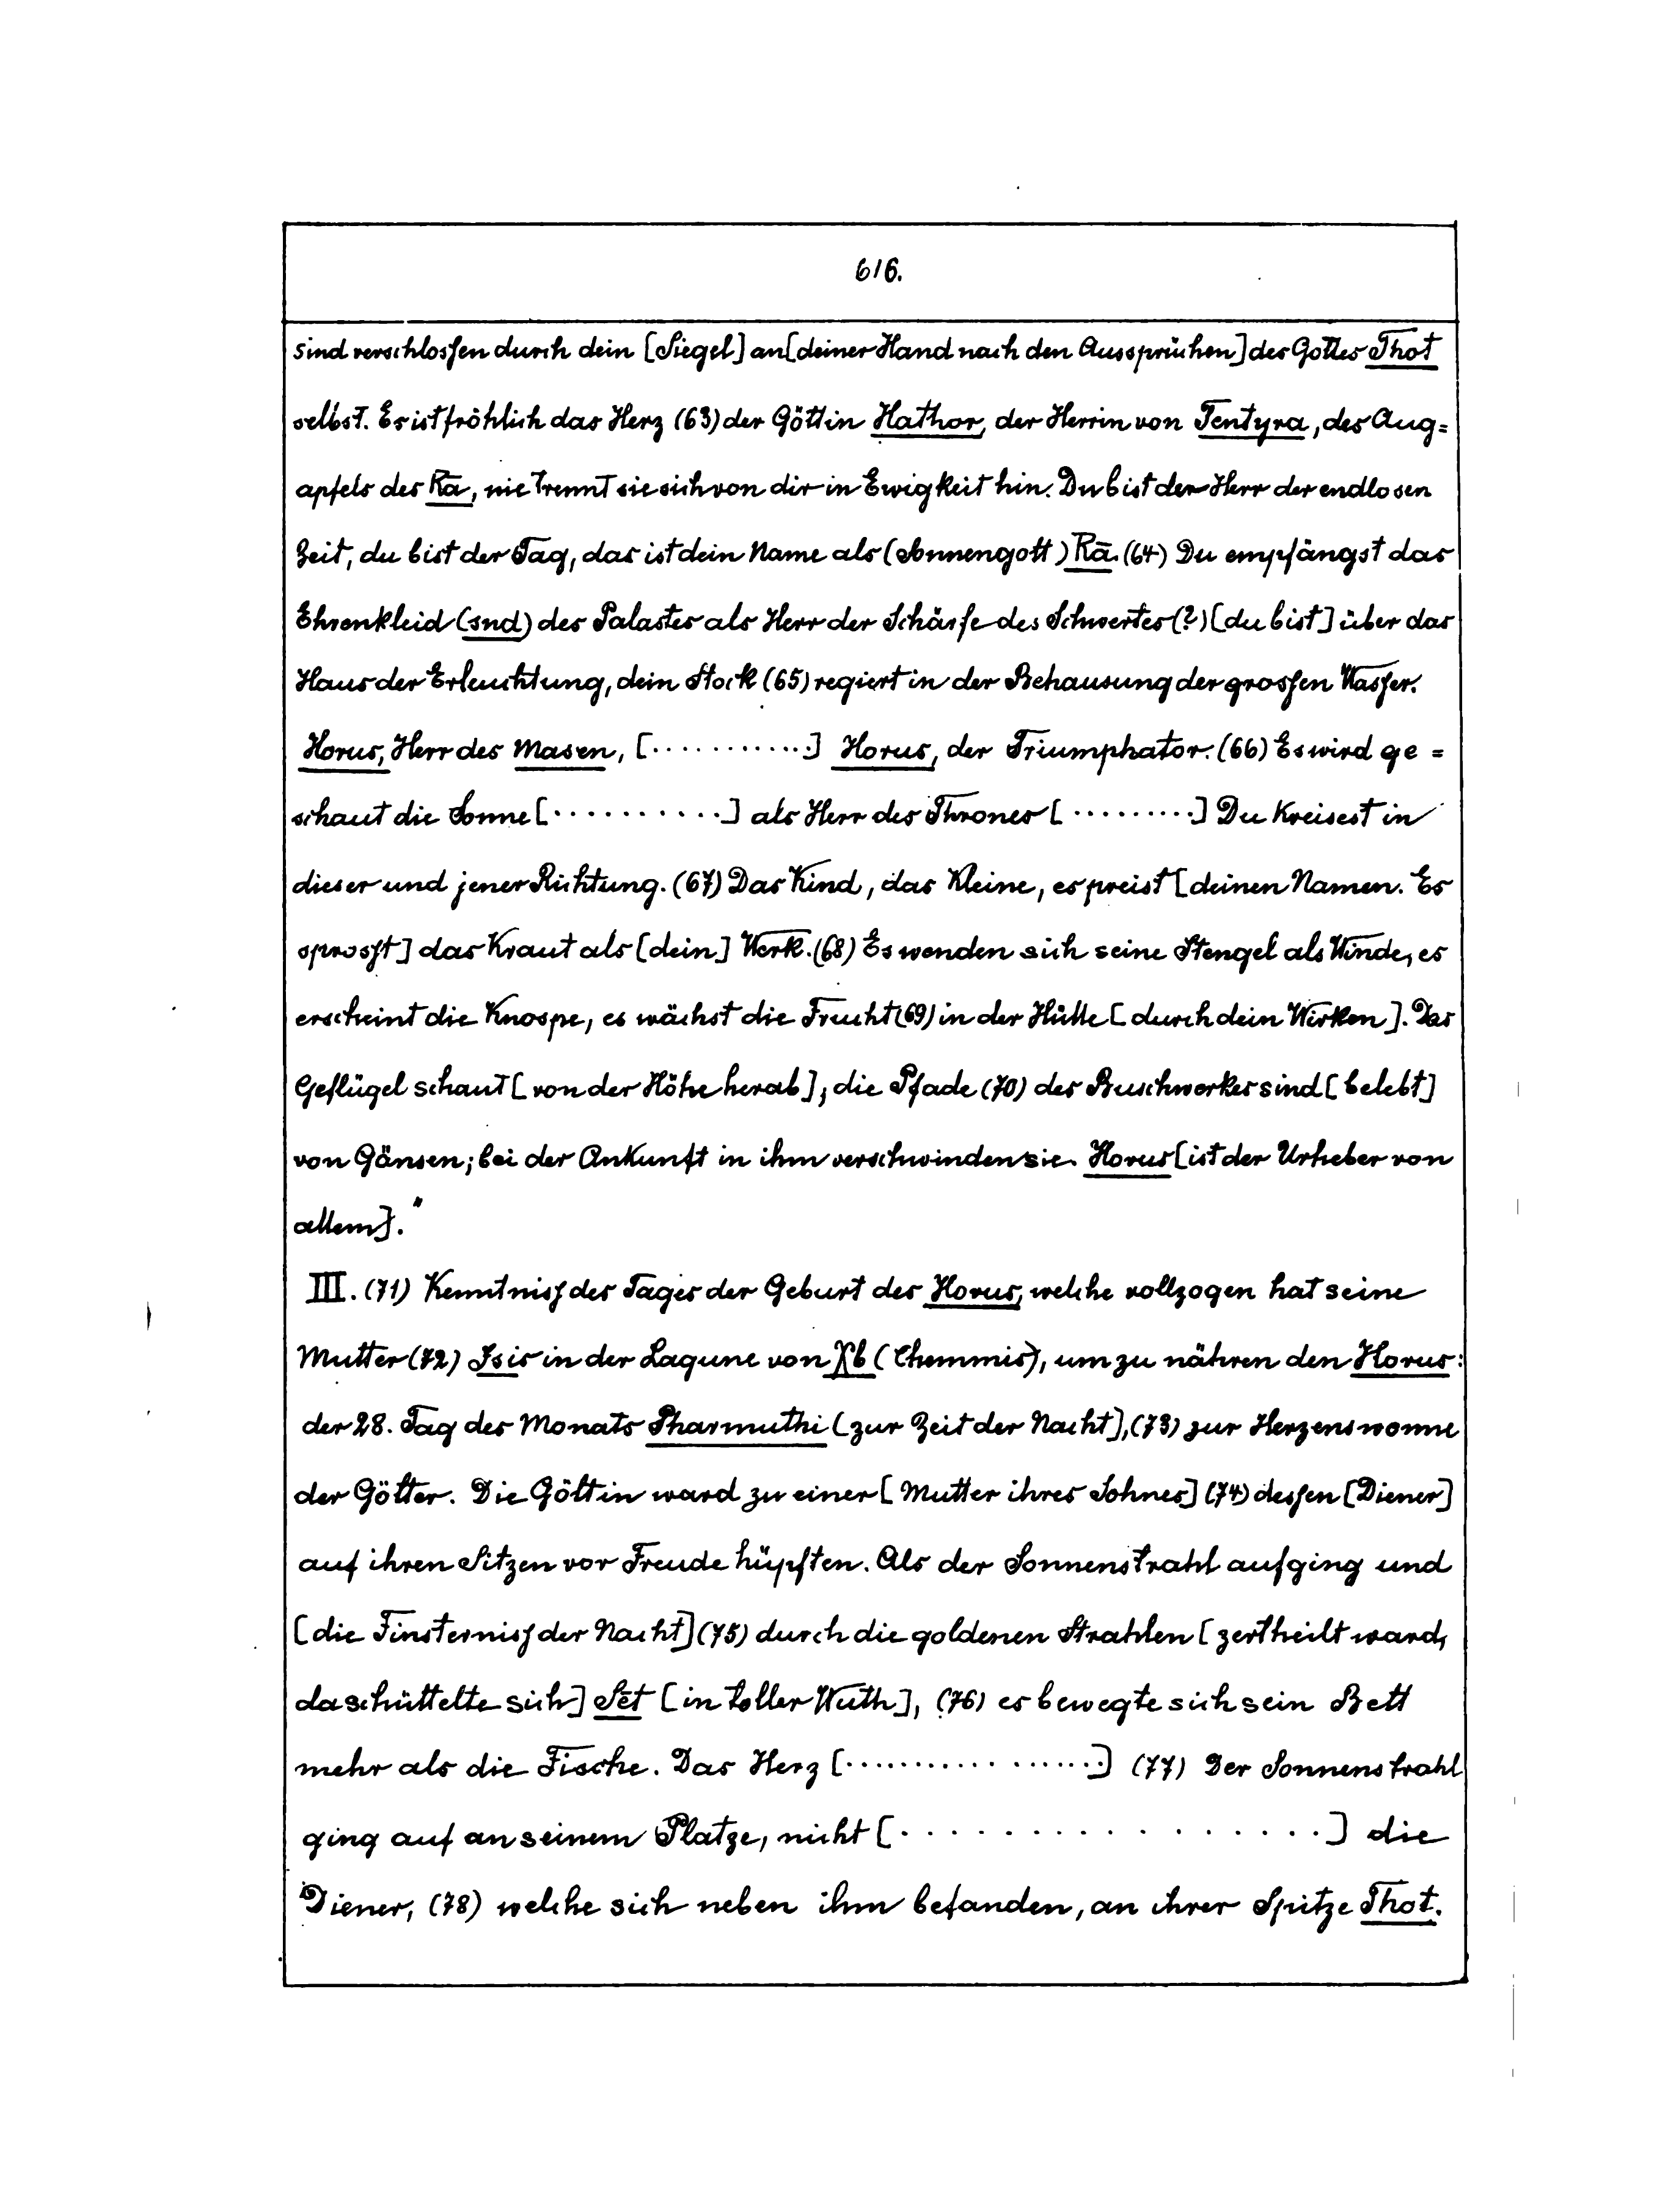 616.
sind verschlossen durch dein [Siegel] an [deiner Hand nach den Aussprüchen] des Gottes Thot
selbst. Es ist fröhlich das Herz (63) der Göttin Hathor, der Herrin von Tentyra, des Aug=
apfels des Rā, nie trennt sie sich von dir in Ewigkeit hin. Du bist der Herr der endlosen
Zeit, du bist der Tag, das ist dein Name als (Sonnengott) Rā. (64) Du empfängst das
Ehrenkleid (snd) des Palastes als Herr der Schärfe des Schwertes (?) [du bist] über das
Haus der Erleuchtung, dein Stock (65) regiert in der Behausung der grossen Wasser.
Horus, Herr des Masen, [............] Horus, der Triumphator. (66) Es wird ge=
schaut die Sonne [...........] als Herr des Thrones [.........] Du kreisest in
dieser und jener Richtung. (67) Das Kind, das Kleine, es preist [deinen Namen. Es
sprosst] das Kraut als [dein] Werk. (68) Es wenden sich seine Stengel als Winde, es
erscheint die Knospe, es wächst die Frucht (69) in der Hülle [durch dein Wirken]. Das
Geflügel schaut [von der Höhe herab], die Pfade (70) des Buschwerkes sind [belebt]
von Gänsen; bei der Ankunft in ihm verschwinden sie. Horus [ist der Urheber von
allem]."
III. (71) Kenntniss des Tages der Geburt des Horus, welche vollzogen hat seine
Mutter (72) Isis in der Lagune von Χb (Chemmis), um zu nähren den Horus:
der 28. Tag des Monats Pharmuthi [zur Zeit der Nacht], (73) zur Herzenswonne
der Götter. Die Göttin ward zu einer [Mutter ihres Sohnes] (74) dessen [Diener]
auf ihren Sitzen vor Freude hüpften. Als der Sonnenstrahl aufging und
[die Finsterniss der Nacht] (75) durch die goldenen Strahlen [zertheilt ward,
da schüttelte sich] Sēt [in toller Wuth], (76) es bewegte sich sein Bett
mehr als die Fische. Das Herz [.................] (77) Der Sonnenstrahl
ging auf an seinem Platze, nicht [.................] die
Diener, (78) welche sich neben ihm befanden, an ihrer Spitze Thot.